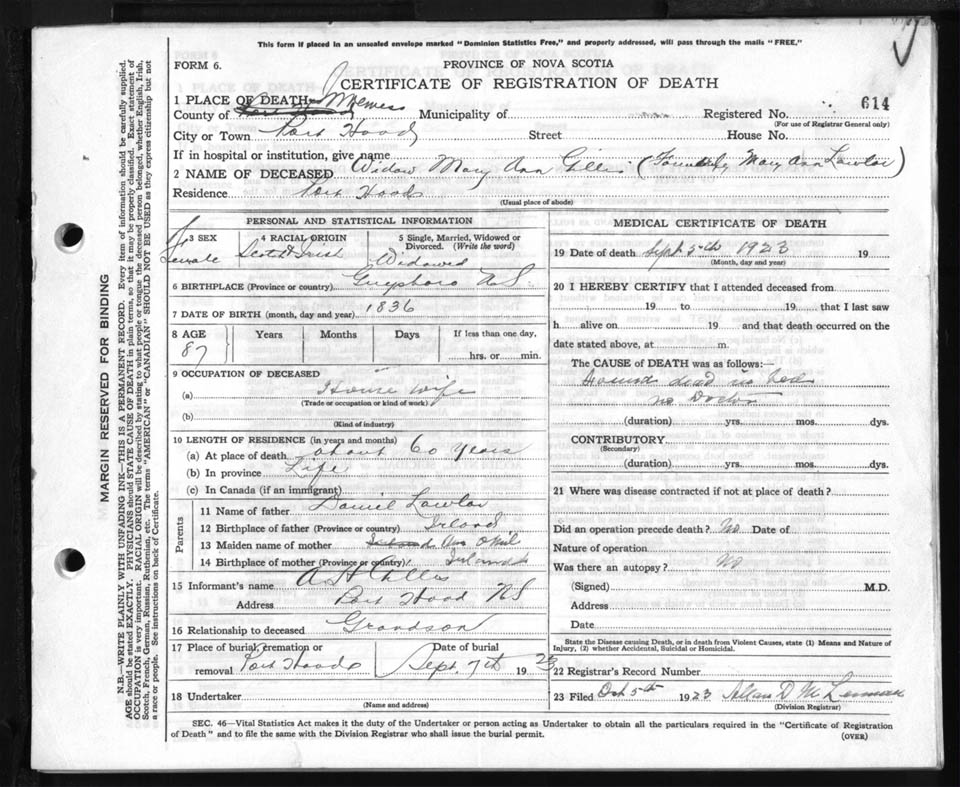 This form if placed in an unsealed envelope marked "Dominion Statistics Free," and properly addressed, will pass through the mails "FREE."
FORM 6.
PROVINCE OF NOVA SCOTIA
CERTIFICATE OF REGISTRATION OF DEATH
1 PLACE OF DEATH—
County of Inverness Municipality of Registered No. 614
(For use of Registrar General only)
City or Town Port Hood Street House No.
If in hospital or institution, give name
2 NAME OF DECEASED Widow Mary Ann Gillis (Formerly Mary Ann Lawlor)
Residence Port Hood
(Usual place of abode)
PERSONAL AND STATISTICAL INFORMATION
3 SEX Female
4 RACIAL ORIGIN Scot & Irish
5 Single, Married, Widowed or Divorced. (Write the word) Widowed
6 BIRTHPLACE (Province or country) Guysboro N S
7 DATE OF BIRTH (month, day and year) 1836
8 AGE Years Months Days If less than one day,
87 hrs. or min.
9 OCCUPATION OF DECEASED
(a) House wife
(Trade or occupation or kind of work)
(b)
(Kind of industry)
10 LENGTH OF RESIDENCE (in years and months)
(a) At place of death about 60 years
(b) In province Life
(c) In Canada (if an immigrant)
Parents
11 Name of father Daniel Lawlor
12 Birthplace of father (Province or country) Irland
13 Maiden name of mother
14 Birthplace of mother (Province or country) Irland
15 Informant's name A H Gillis
Address Port Hood NS
16 Relationship to deceased Grandson
17 Place of burial, cremation or removal Port Hood
Date of burial Sept. 7th 1923
18 Undertaker
(Name and address)
MEDICAL CERTIFICATE OF DEATH
19 Date of death Sept 5th 1923 19
(Month, day and year)
20 I HEREBY CERTIFY that I attended deceased from
19 to 19 that I last saw
h alive on 19 and that death occurred on the
date stated above, at m.
The CAUSE OF DEATH was as follows:—
Found dead in bed
no Doctor
(duration) yrs. mos. dys.
CONTRIBUTORY
(Secondary)
(duration) yrs. mos. dys.
21 Where was disease contracted if not at place of death?
Did an operation precede death? No Date of
Nature of operation
Was there an autopsy? No
(Signed) M.D.
Address
Date
State the Disease causing Death, or in death from Violent Causes, state (1) Means and Nature of
Injury, (2) whether Accidental, Suicidal or Homicidal.
22 Registrar's Record Number
23 Filed Oct 5th 1923 Allan D
(Division Registrar)
SEC. 46—Vital Statistics Act makes it the duty of the Undertaker or person acting as Undertaker to obtain all the particulars required in the "Certificate of Registration
of Death" and to file the same with the Division Registrar who shall issue the burial permit.
(OVER)
MARGIN RESERVED FOR BINDING
N.B.—WRITE PLAINLY WITH UNFADING INK—THIS IS A PERMANENT RECORD. Every item of information should be carefully supplied.
AGE should be stated EXACTLY. PHYSICIANS should STATE CAUSE OF DEATH in plain terms, so that it may be properly classified. Exact statement of
OCCUPATION is very important. RACIAL ORIGIN will be described by stating to what people or tongue the deceased person belonged, whether English, Irish,
Scotch, French, German, Russian, Ruthenian, etc. The terms "AMERICAN" or "CANADIAN" SHOULD NOT BE USED as they express citizenship but not
a race or people. See instructions on back of Certificate.